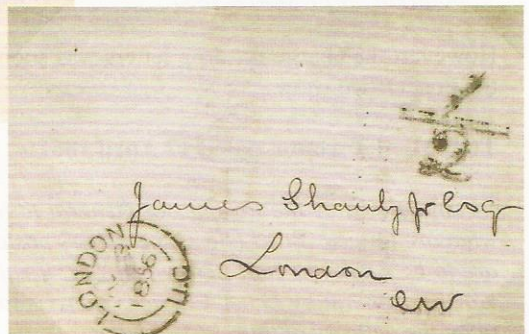 James Shanly Jr Esqr
London
CW
LONDON
U.C.
1856